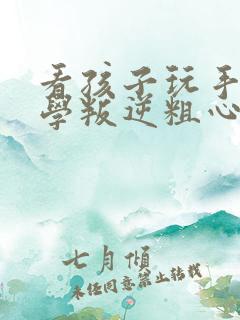 看孩子玩手
學叛逆粗心
七月傾
未经同意禁止转载